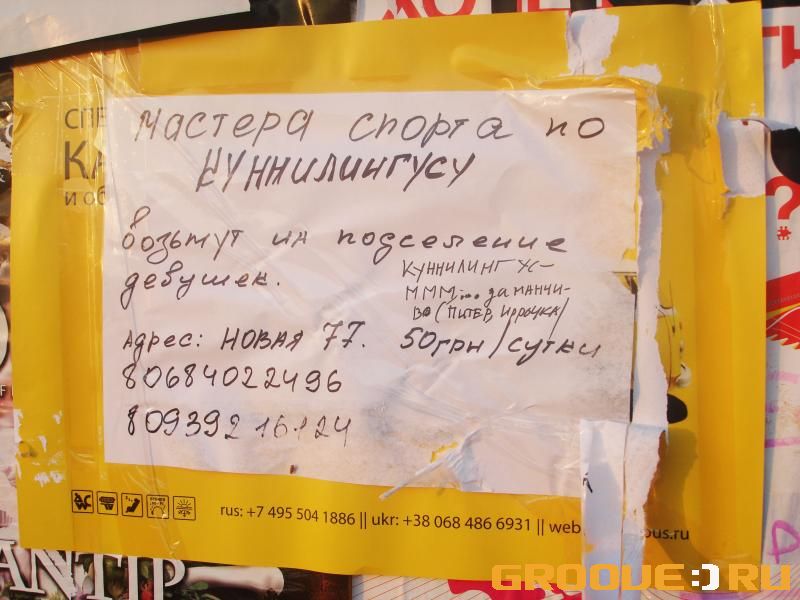 ХОЧЕ
СПЕ
КА
И ОБ
МАСТЕРА СПОРТА ПО
КУННИЛИНГУСУ
возьмут на подселение
девушек.
КУННИЛИНГУС-
МММ... ЗАМАНЧИ-
ВО (ПИТЕР ИРОЧКА)
Адрес: НОВАЯ 77. 50грн/сутки
80684022496
80939216124
rus: +7 495 504 1886 || ukr: +38 068 486 6931 || web
bus.ru
ANTIP
GROOVE:)RU